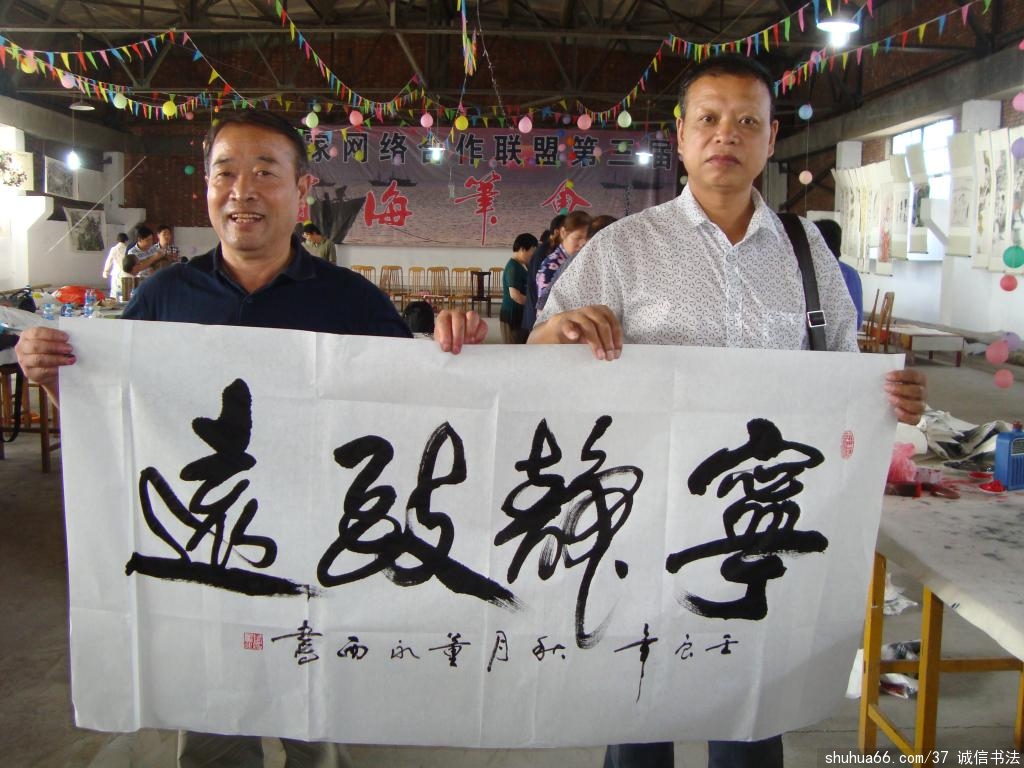 家网络合作联盟第三届
海筆会
寧靜致遠
壬辰年秋月董永西書
shuhua66.com/37 诚信书法